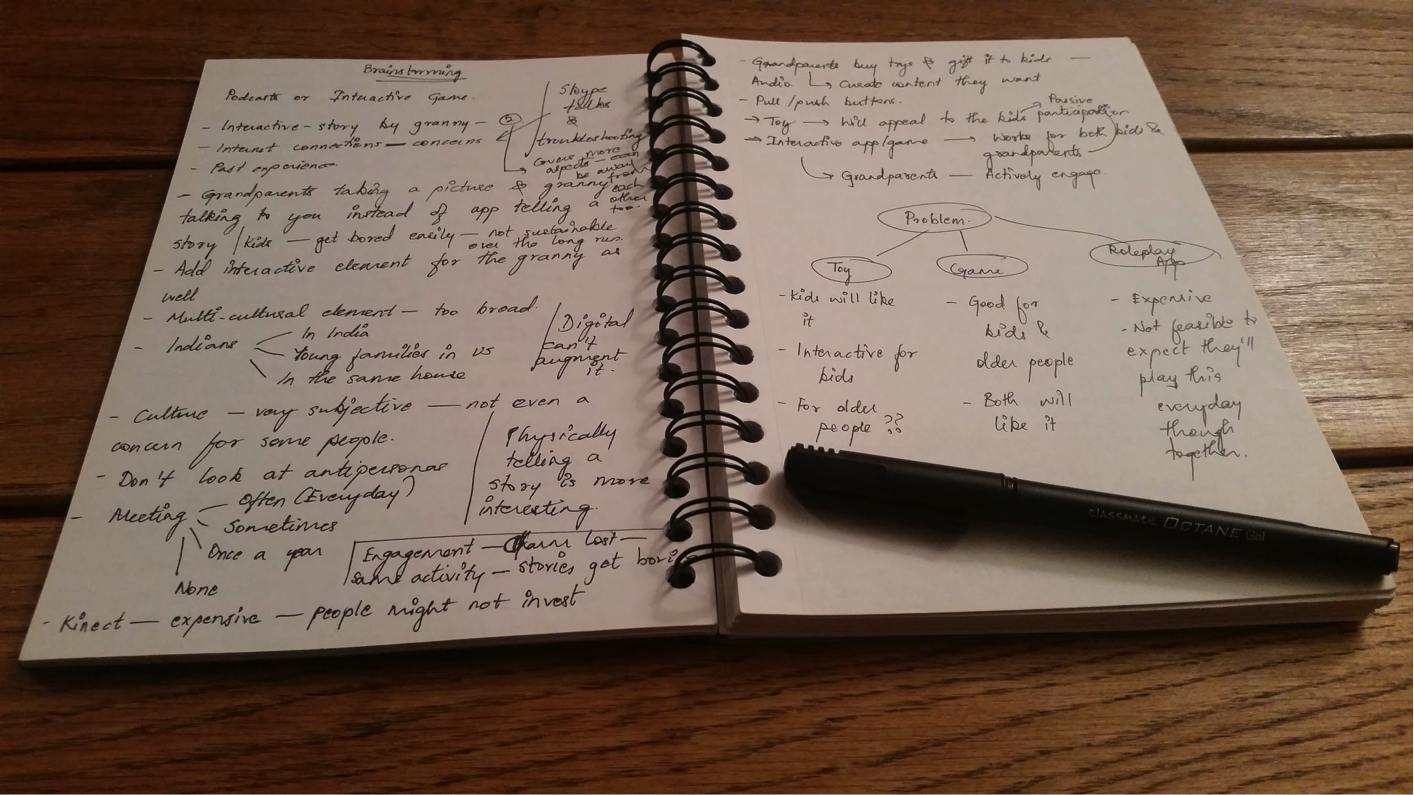 Brainstorming
Podcasts or Interactive Game.
- Interactive - story by granny -
- Internet connections — concerns
- Past experience
Skype
talks
&
troubleshooting
Covers more
aspects - can
be away
from
each
other
too.
- Grandparents taking a picture & granny
talking to you instead of app telling a
story / kids — get bored easily — not sustainable
over the long run.
- Add interactive element for the granny as
well
- Multi-cultural element — too broad.
- Indians
In India
Young families in US
In the same house
Digital
can't
augment
it.
- Culture — very subjective — not even a
concern for some people.
- Don't look at antipersonas
- Meeting
Often (Everyday)
Sometimes
Once a year
None
Physically
telling a
story is more
interesting.
Engagement — Charm lost —
same activity — stories get
- Kinect — expensive — people might not invest
- Grandparents buy toys & gift it to kids —
Audio. Curate content they want
- Pull/push buttons.
→ Toy → Will appeal to the kids
Passive
participation
→ Interactive app/game → Works for both kids &
grandparents
Grandparents — Actively engage.
Problem.
Toy
Game
Roleplay
App
- Kids will like
it
- Interactive for
kids
- For older
people ??
- Good for
kids &
older people
- Both will
like it
- Expensive
- Not feasible to
expect they'll
play this
everyday
though
together.
classmate OCTANE Gel